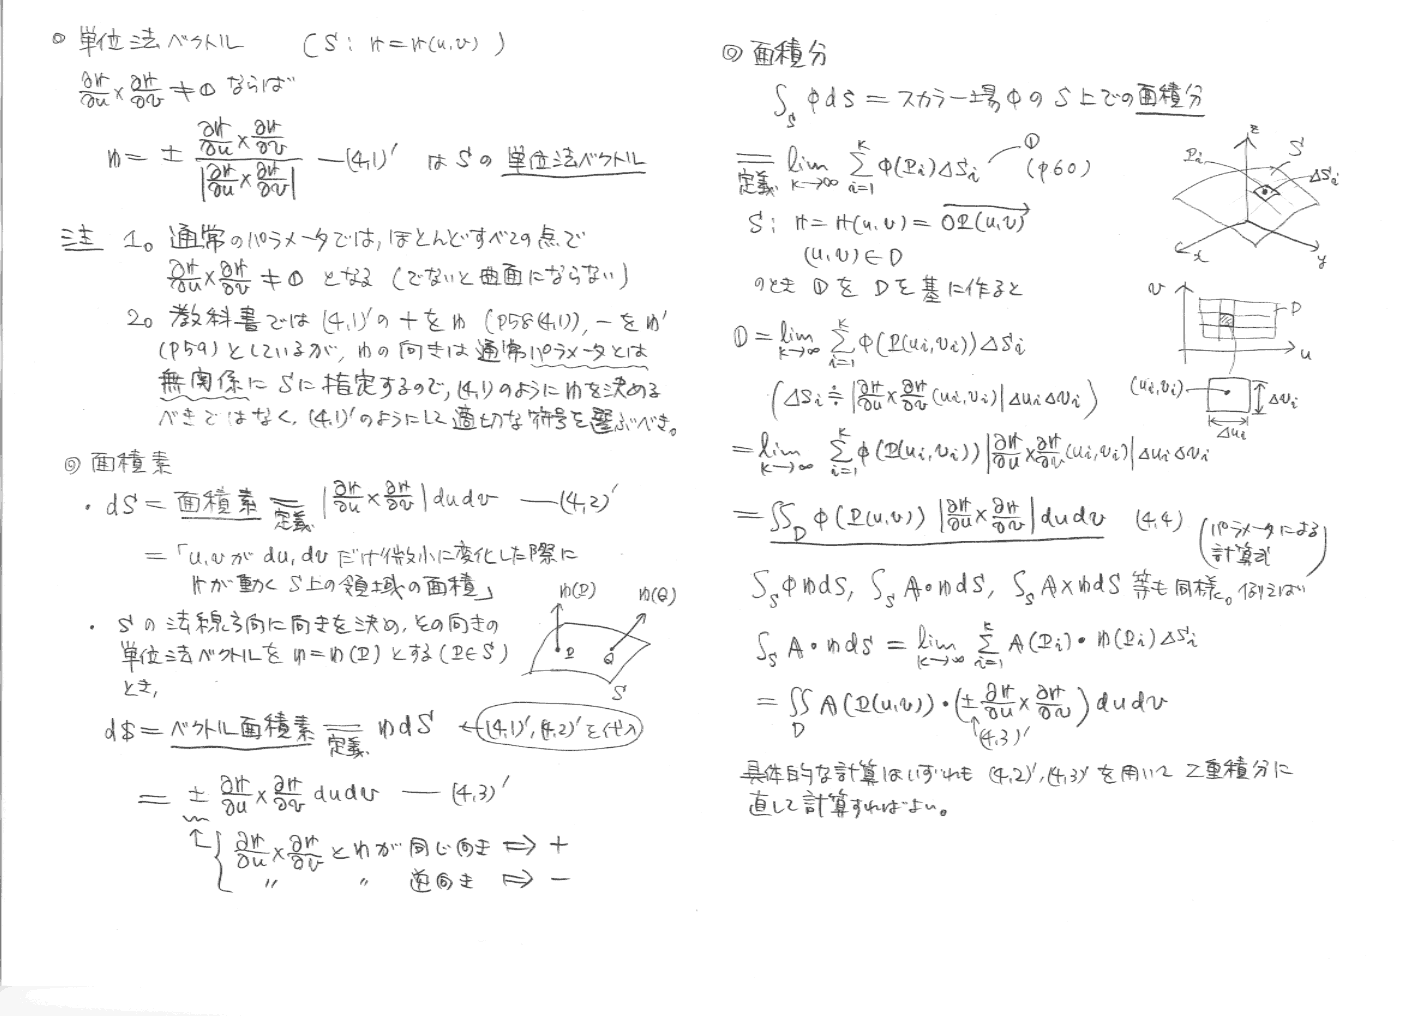 ◎ 単位法ベクトル (S: r=r(u,v))
∂r/∂u×∂r/∂v≠0 ならば
n= ± (∂r/∂u×∂r/∂v)/|∂r/∂u×∂r/∂v| —(4,1)' は S の 単位法ベクトル
注 1. 通常のパラメータでは,ほとんどすべての点で
∂r/∂u×∂r/∂v≠0 となる (でないと曲面にならない)
2. 教科書では (4,1)'の+を n (p58(4,1)), −を n'
(p59) としているが, nの向きは通常パラメータとは
無関係に Sに指定するので,(4,1)のようにnを決める
べきではなく,(4,1)'のようにして適切な符号を選ぶべき。
◎ 面積素
・dS= 面積素 = |∂r/∂u×∂r/∂v| du dv —(4,2)'
定義
=「u,vが du,dvだけ微小に変化した際に
rが動く S上の領域の面積」
・ Sの法線方向に向きを決め,その向きの
単位法ベクトルを n=n(P) とする (P∈S)
とき,
n(P) n(Q)
P Q
S
d𝕊= ベクトル面積素 = n dS ←(4,1)',(4,2)'を代入
定義
= ± ∂r/∂u×∂r/∂v du dv —(4,3)'
↑{ ∂r/∂u×∂r/∂v とnが 同じ向き ⇒ +
〃 〃 逆向き ⇒ −
◎ 面積分
∫_S φdS = スカラー場φの S上での面積分
= lim_{K→∞} Σ_{i=1}^{K} φ(P_i)ΔS_i ① (p60)
定義
S: r=r(u,v)=OP(u,v)
(u,v)∈D
のとき ①を Dを基に作ると
z P_i S ΔS_i
x y
v D
u
(u_i,v_i) Δv_i
Δu_i
①= lim_{K→∞} Σ_{i=1}^{K} φ(P(u_i,v_i))ΔS_i
(ΔS_i≒|∂r/∂u×∂r/∂v(u_i,v_i)|Δu_iΔv_i)
= lim_{K→∞} Σ_{i=1}^{K} φ(P(u_i,v_i))|∂r/∂u×∂r/∂v(u_i,v_i)|Δu_iΔv_i
= ∬_D φ(P(u,v))|∂r/∂u×∂r/∂v|du dv (4,4) (パラメータによる計算式)
∫_S φn dS, ∫_S A・n dS, ∫_S A×n dS 等も同様。例えば
∫_S A・n dS = lim_{K→∞} Σ_{i=1}^{K} A(P_i)・n(P_i)ΔS_i
= ∬_D A(P(u,v))・(±∂r/∂u×∂r/∂v)du dv
↑(4,3)'
具体的な計算はいずれも (4,2)',(4,3)'を用いて 2重積分に
直して計算すればよい。